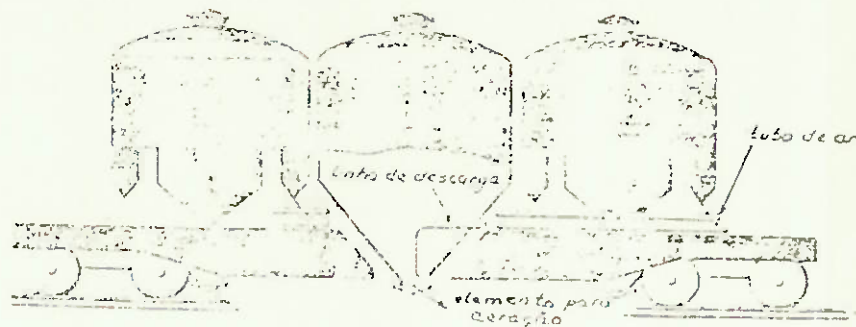 tubo de ar
linha de descarga
elemento para
aeração